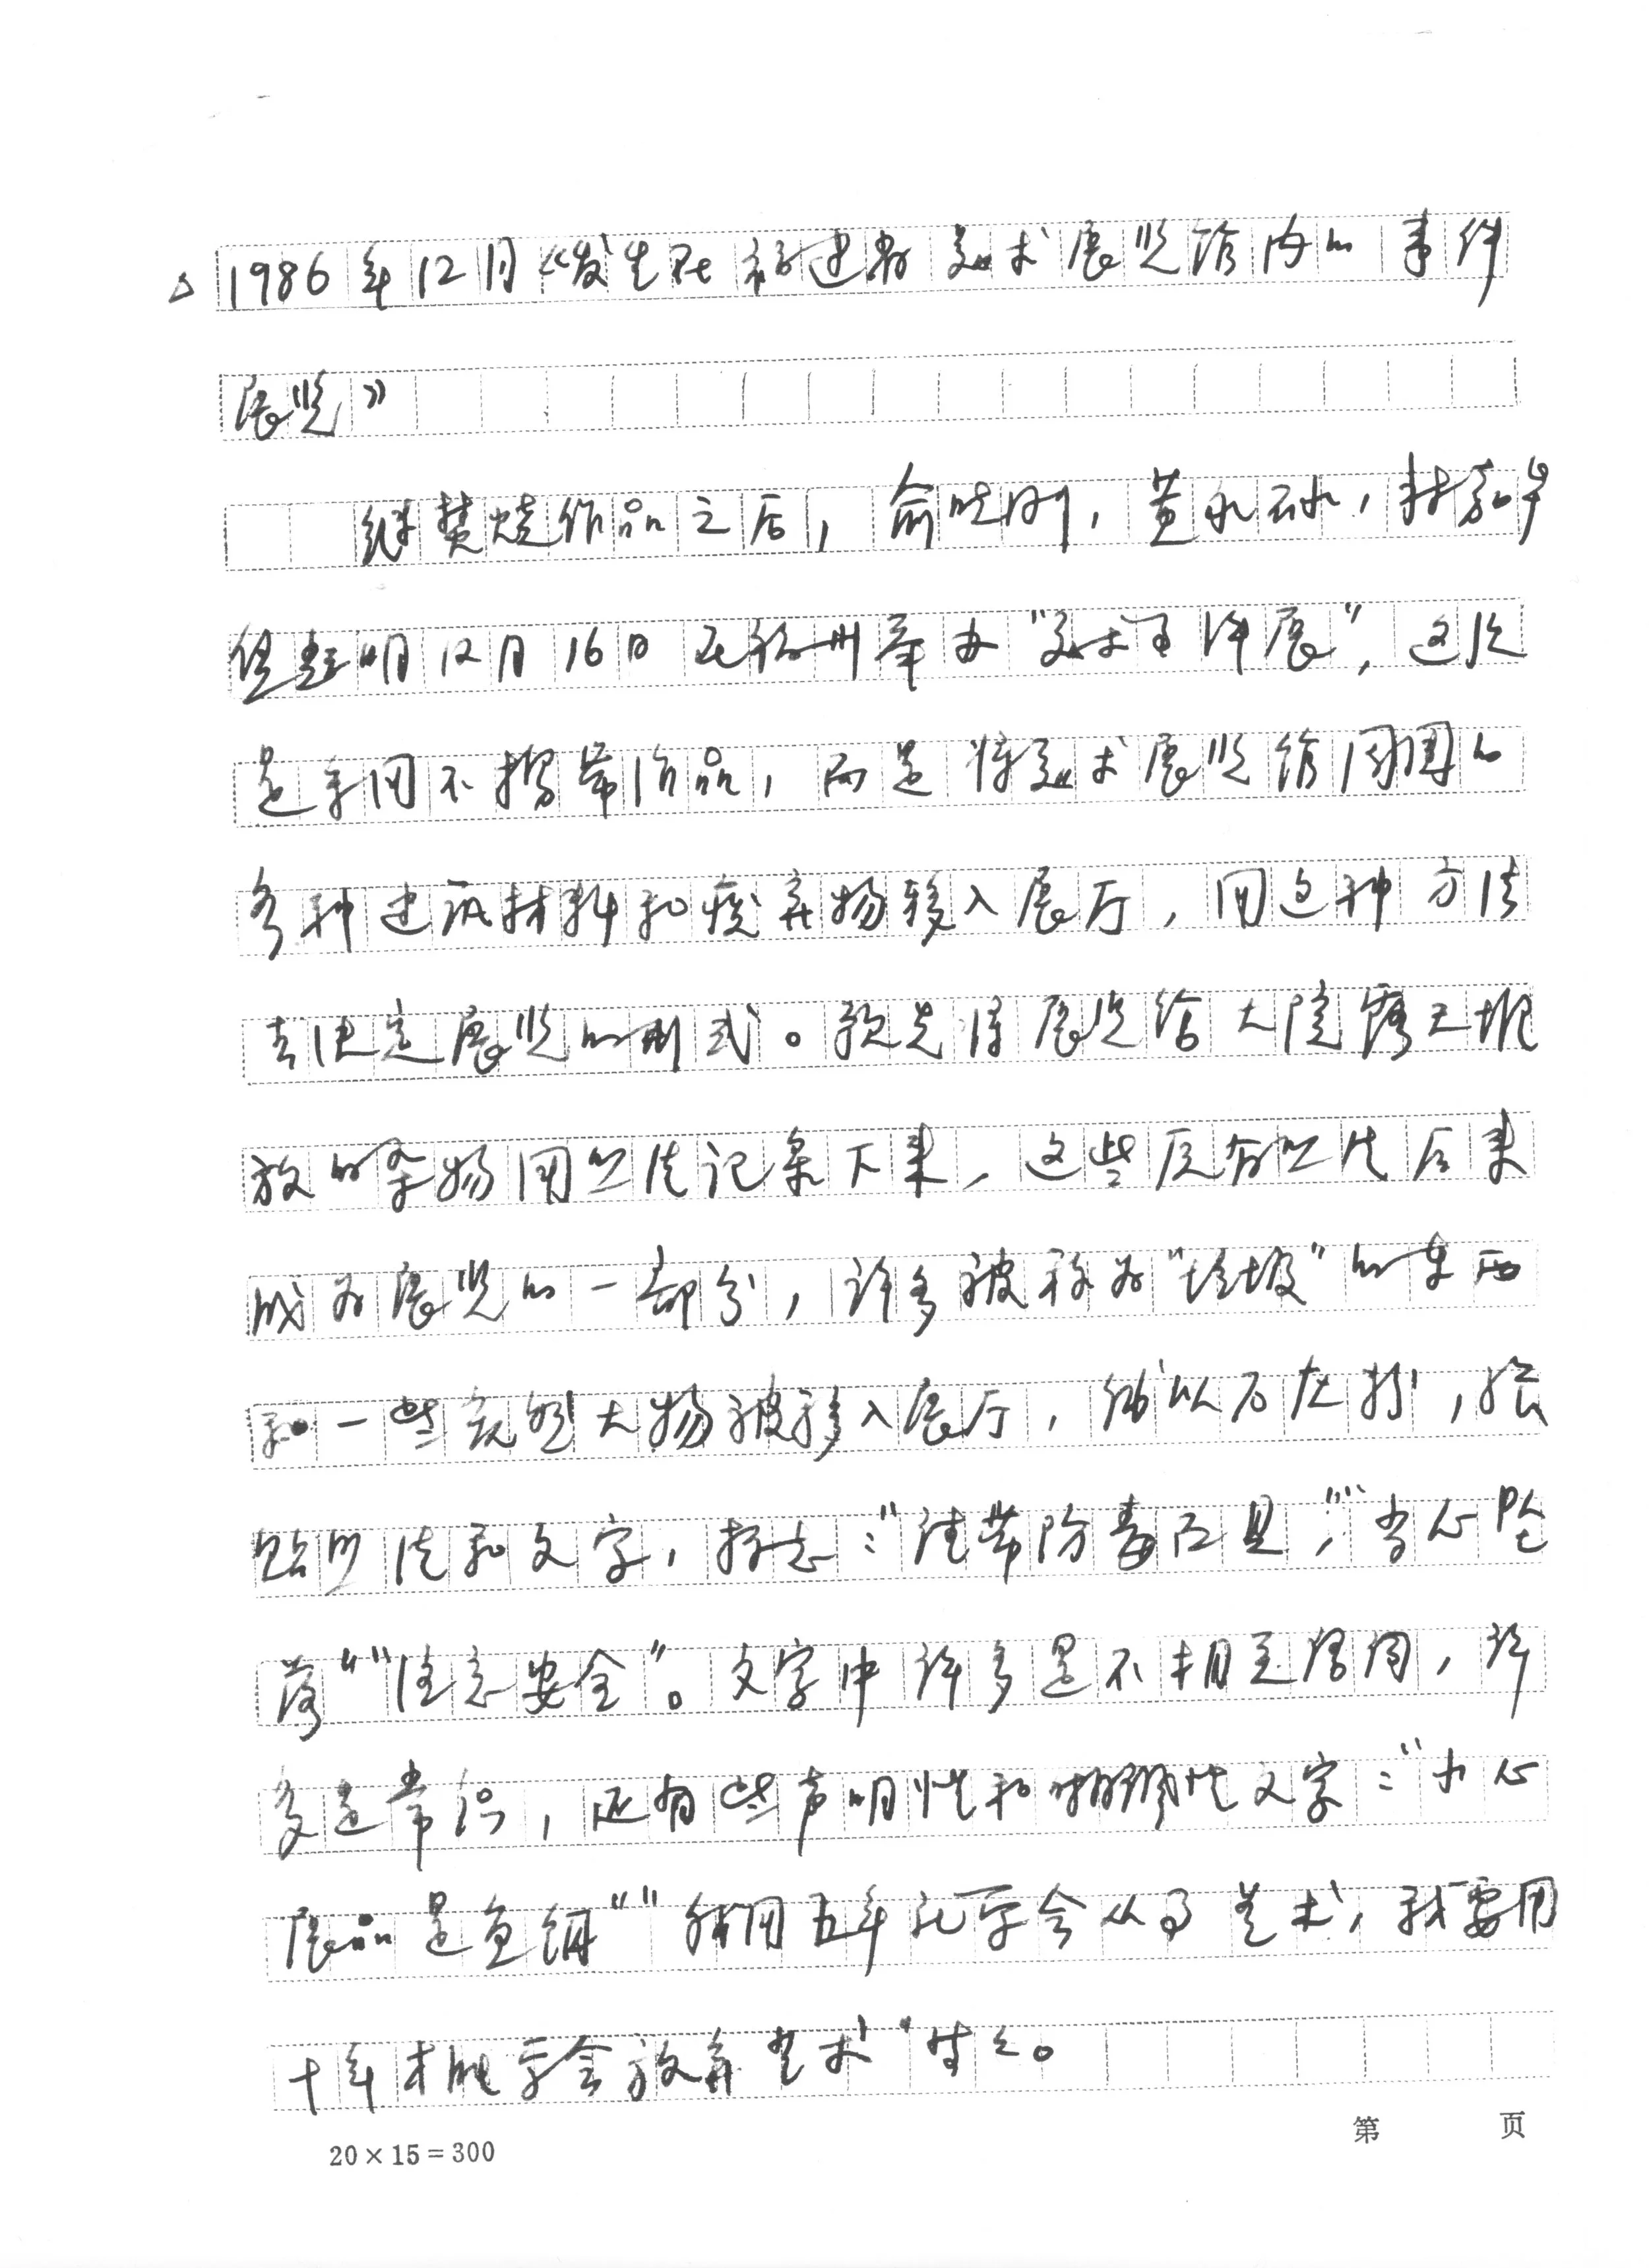 △1986年12月《发生在福建省美术展览馆内的事件
展览》
继焚烧作品之后，俞晓刚，黄永砯，林嘉华
焦耀明12月16日在福州举办“美术事件展”，这次
是采用不携带作品，而是将美术展览馆周围的
各种建筑材料和废弃物移入展厅，用这种方法
去决定展览的形式。预先将展览馆大院露天堆
放的杂物用照片记录下来，这些原有照片后来
成为展览的一部分，许多被称为“垃圾”的东西
和一些庞然大物被移入展厅，铺以石灰粉，张
贴照片和文字，标志：“请带防毒面具”，“当心坠
落”“注意安全”。文字中许多是不相关语词，许
多是常识，还有些声明性和 性文字：“小心
展品是鱼饵”“我用五年祀学会从事艺术，我要用
十年才能学会放弃艺术”等等。
20×15=300
第 页